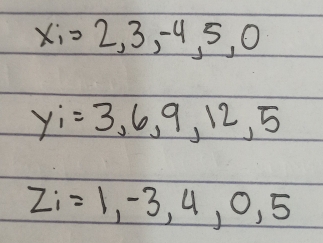 xi = 2, 3, -4, 5, 0
yi = 3, 6, 9, 12, 5
Zi = 1, -3, 4, 0, 5